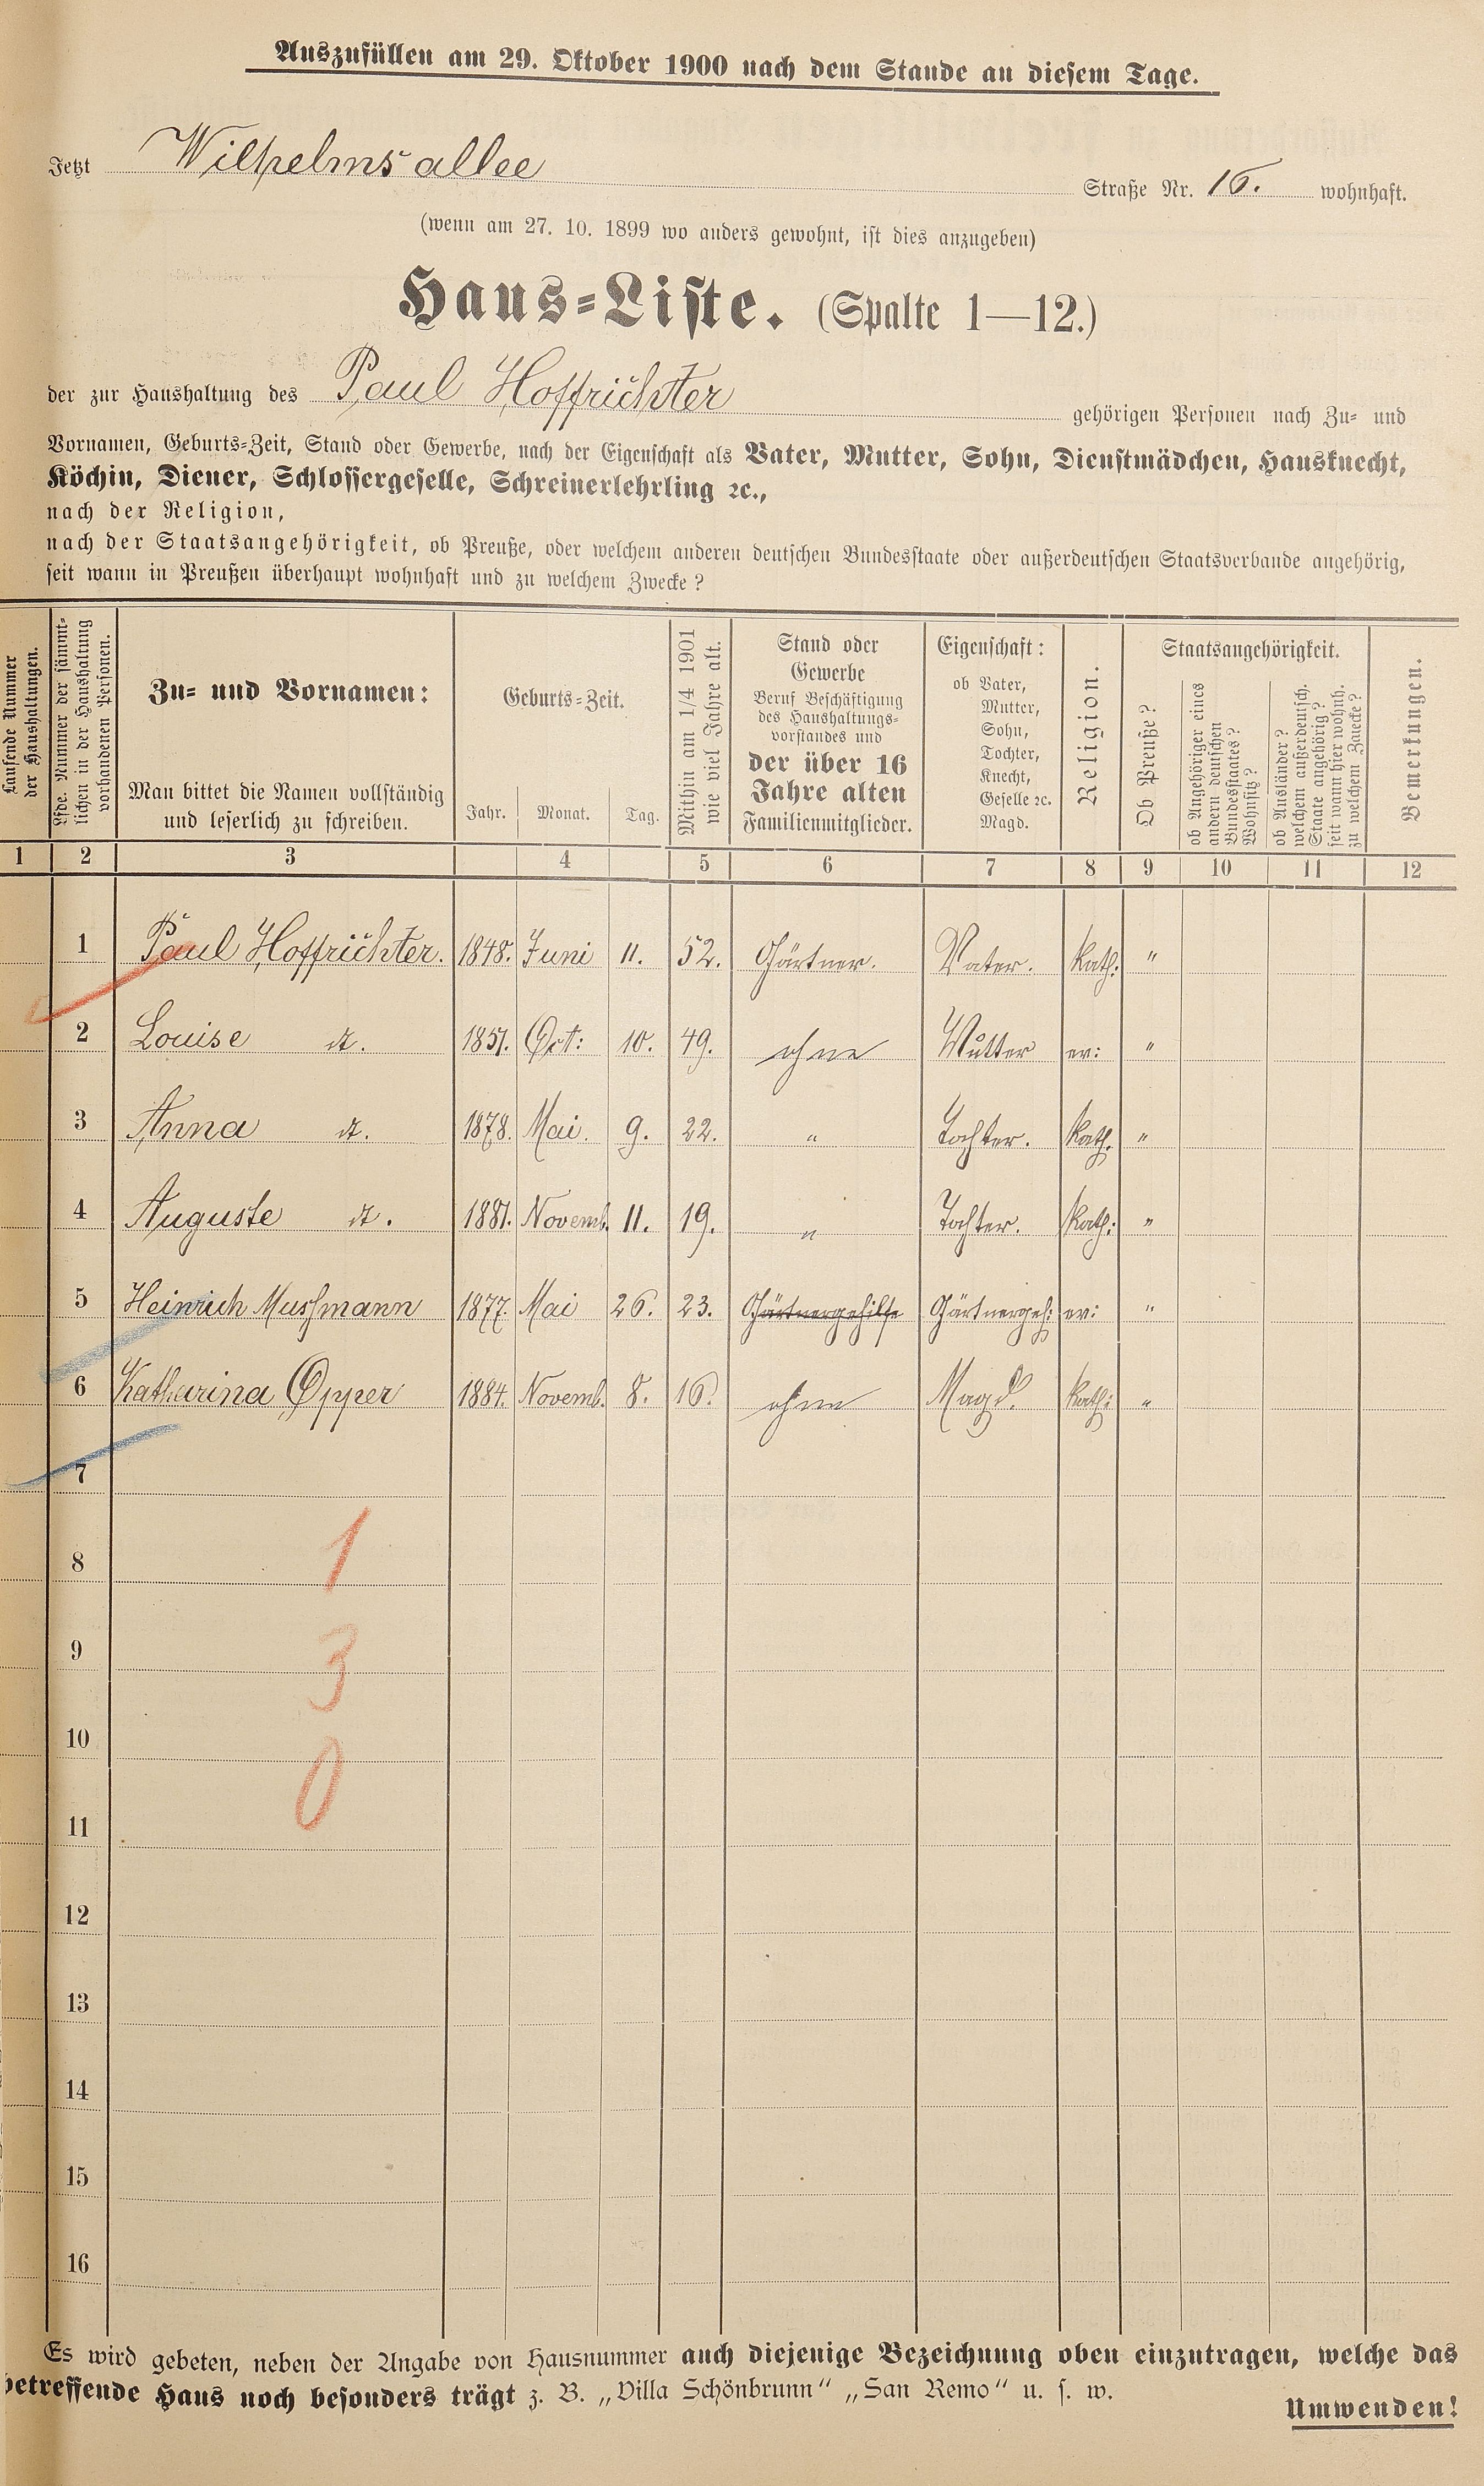 Auszufüllen am 29. Oktober 1900 nach dem Stande an diesem Tage.
Jetzt Wilhelmsallee Straße Nr. 16. wohnhaft.
(wenn am 27. 10. 1899 wo anders gewohnt, ist dies anzugeben)
Haus-Liste. (Spalte 1—12.)
der zur Haushaltung des Paul Hoffrichter gehörigen Personen nach Zu- und
Vornamen, Geburts-Zeit, Stand oder Gewerbe, nach der Eigenschaft als Vater, Mutter, Sohn, Dienstmädchen, Hausknecht,
Köchin, Diener, Schlossergeselle, Schreinerlehrling ꝛc.,
nach der Religion,
nach der Staatsangehörigkeit, ob Preuße, oder welchem anderen deutschen Bundesstaate oder außerdeutschen Staatsverbande angehörig,
seit wann in Preußen überhaupt wohnhaft und zu welchem Zwecke?
Laufende Nummer
der Haushaltungen.
Lfde. Nummer der sämmt-
lichen in der Haushaltung
vorhandenen Personen.
Zu- und Vornamen:
Man bittet die Namen vollständig
und leserlich zu schreiben.
Geburts-Zeit.
Jahr. Monat. Tag.
Mithin am 1/4 1901
wie viel Jahre alt.
Stand oder
Gewerbe
Beruf Beschäftigung
des Haushaltungs-
vorstandes und
der über 16
Jahre alten
Familienmitglieder.
Eigenschaft:
ob Vater,
Mutter,
Sohn,
Tochter,
Knecht,
Geselle ꝛc.
Magd.
Religion.
Staatsangehörigkeit.
Ob Preuße?
ob Angehöriger eines
andern deutschen
Bundesstaates?
Wohnsitz?
ob Ausländer?
welchem außerdeutsch.
Staate angehörig?
seit wann hier wohnh.
zu welchem Zwecke?
Bemerkungen.
1 2 3 4 5 6 7 8 9 10 11 12
1 Paul Hoffrichter. 1848. Juni 11. 52. Gärtner. Vater. kath: "
2 Louise dt. 1851. Oct: 10. 49. ohne Mutter ev: "
3 Anna dt. 1878. Mai. 9. 22. " Tochter. kath. "
4 Auguste dt. 1881. Novemb. 11. 19. " Tochter. kath: "
5 Heinrich Mussmann 1877. Mai 26. 23. Gärtnergehilfe Gärtnergeh: ev: "
6 Katharina Opper 1884. Novemb. 8. 16. ohne Magd. kath: "
7
8 1
9 3
10
0
11
12
13
14
15
16
Es wird gebeten, neben der Angabe von Hausnummer auch diejenige Bezeichnung oben einzutragen, welche das
betreffende Haus noch besonders trägt z. B. „Villa Schönbrunn" „San Remo" u. s. w.
Umwenden!